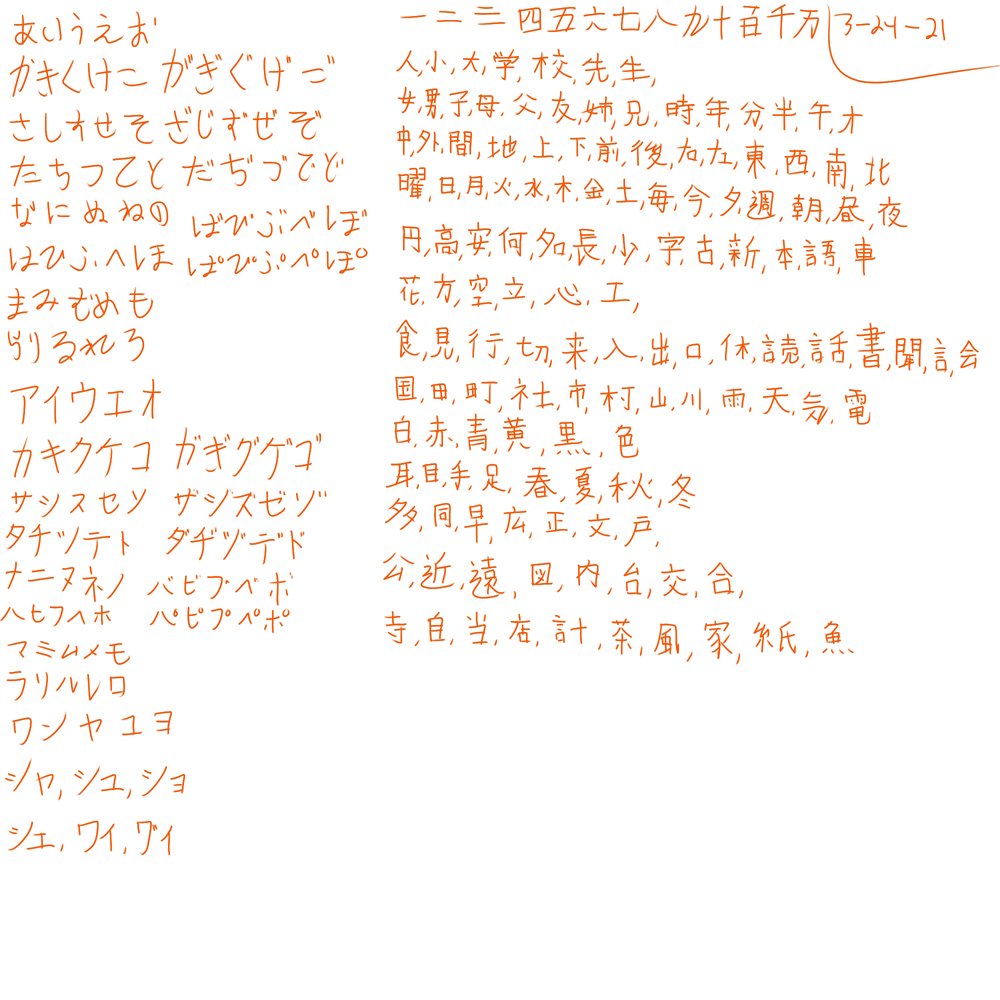 あいうえお
かきくけこ がぎぐげご
さしすせそ ざじずぜぞ
たちつてと だぢづでど
なにぬねの ばびぶべぼ
はひふへほ ぱぴぷぺぽ
まみむめも
らりるれろ
アイウエオ
カキクケコ ガギグゲゴ
サシスセソ ザジズゼゾ
タチツテト ダヂヅデド
ナニヌネノ バビブベボ
ハヒフヘホ パピプペポ
マミムメモ
ラリルレロ
ワンヤユヨ
シャ,シュ,ショ
シェ,ワイ,グイ
一二三四五六七八九十百千万
3-24-21
人,小,大,学,校,先,生,
女,男,子,母,父,友,姉,兄,時,年,分,半,午,才
中,外,間,地,上,下,前,後,右,左,東,西,南,北
曜,日,月,火,水,木,金,土,毎,今,夕,週,朝,昼,夜
円,高,安,何,名,長,少,字,古,新,本,語,車
花,方,空,立,心,工,
食,見,行,切,来,入,出,口,休,読,話,書,聞,言,会
国,田,町,社,市,村,山,川,雨,天,気,電
白,赤,青,黄,黒,色
耳,目,手,足,春,夏,秋,冬
多,同,早,広,正,文,戸,
公,近,遠,図,内,台,交,合,
寺,自,当,店,計,茶,風,家,紙,魚